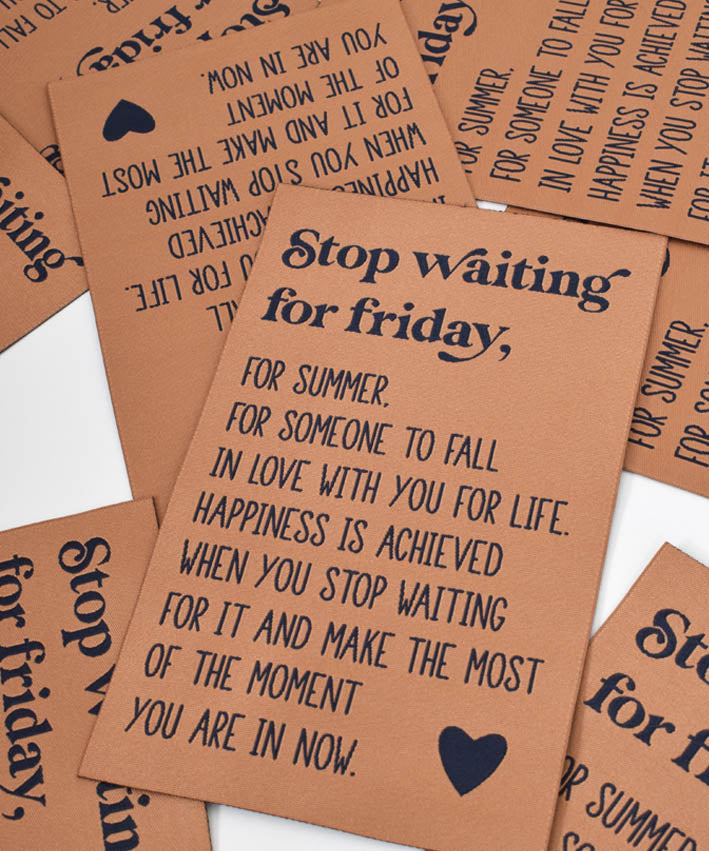 Stop waiting
for friday,
FOR SUMMER,
FOR SOMEONE TO FALL
IN LOVE WITH YOU FOR LIFE.
HAPPINESS IS ACHIEVED
WHEN YOU STOP WAITING
FOR IT AND MAKE THE MOST
OF THE MOMENT
YOU ARE IN NOW.
TO FALL
for friday,
FALL
U FOR LIFE.
HAPPINES
ACHIEVED
WHEN YOU STOP WAITING
FOR IT AND MAKE THE MOST
OF THE MOMENT
YOU ARE IN NOW.
friday,
FOR SUMMER,
FOR SOMEONE TO FALL
IN LOVE WITH YOU FOR
HAPPINESS IS ACHIEVED
WHEN YOU STOP WAITING
FOR IT
waiting
FOR SUMMER,
FOR SO
Stop wa
for friday,
Sto
for f
OR SUMMER
SO